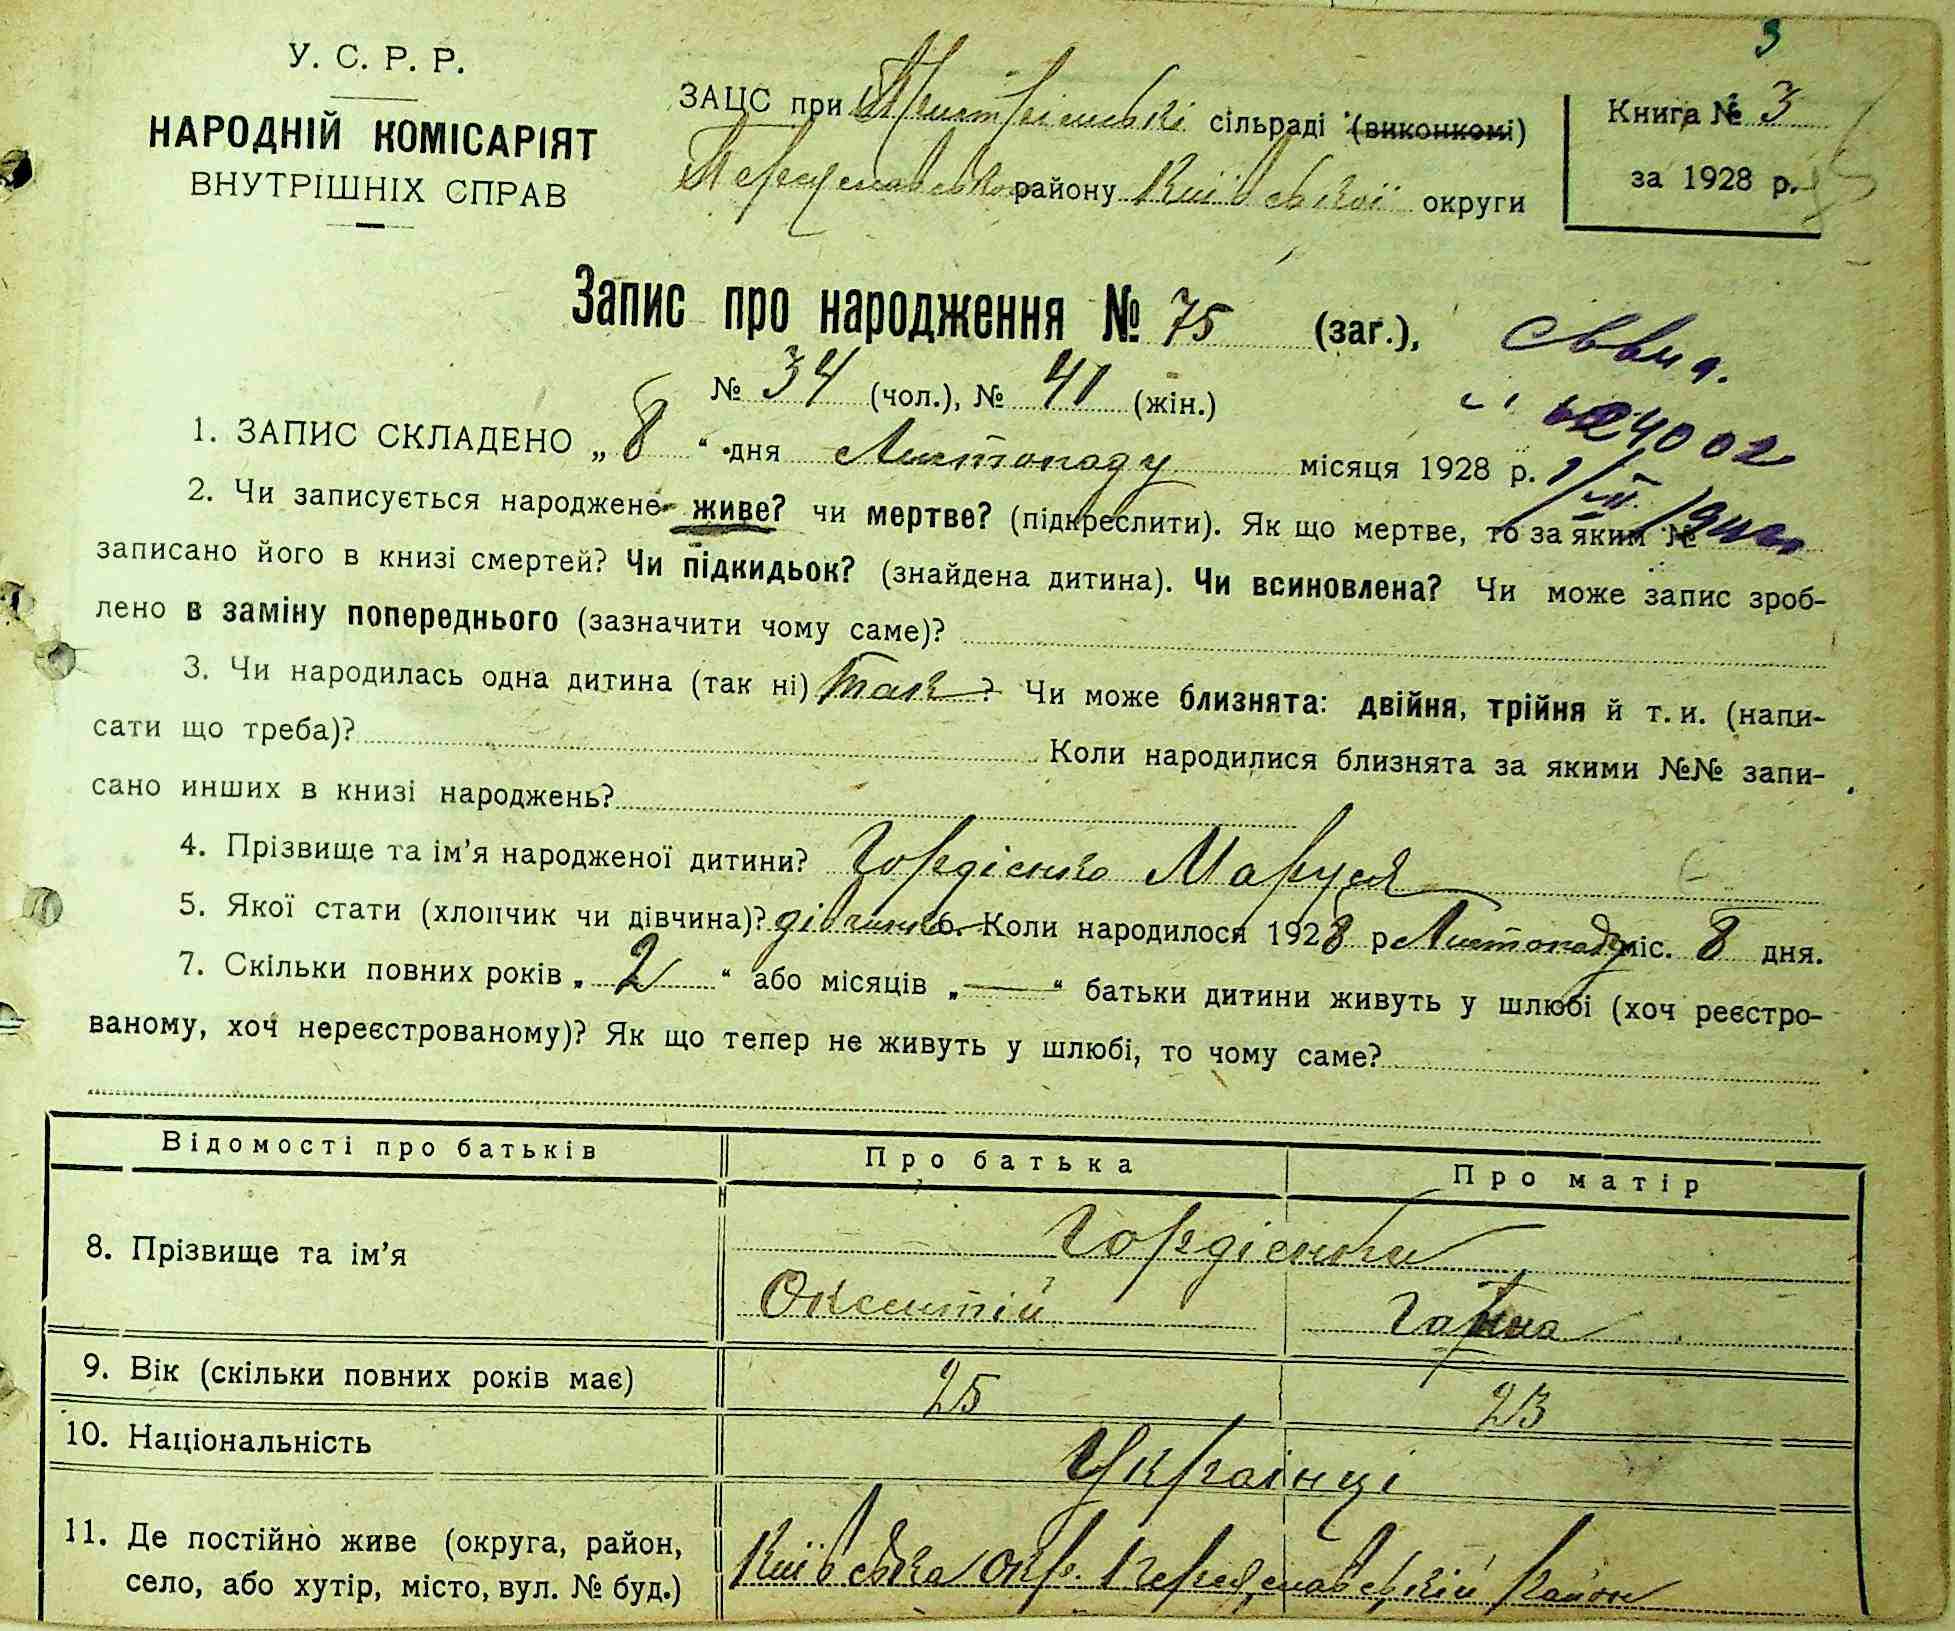 3
У. С. Р. Р.
НАРОДНІЙ КОМІСАРІЯТ
ВНУТРІШНІХ СПРАВ
ЗАЦС при сільраді (виконкомі)
Переяславського району Київської округи
Книга № 3
за 1928 р.
Запис про народження № 75 (заг.),
№ 34 (чол.), № 41 (жін.)
1. ЗАПИС СКЛАДЕНО „ 8 “ дня Листопаду місяця 1928 р.
2. Чи записується народжене живе? чи мертве? (підкреслити). Як що мертве, то за яким №
записано його в книзі смертей? Чи підкидьок? (знайдена дитина). Чи всиновлена? Чи може запис зроб-
лено в заміну попереднього (зазначити чому саме)?
3. Чи народилась одна дитина (так ні) так ? Чи може близнята: двійня, трійня й т. и. (напи-
сати що треба)? Коли народилися близнята за якими №№ запи-
сано инших в книзі народжень?
4. Прізвище та ім’я народженої дитини? Гордієнко Маруся
5. Якої стати (хлопчик чи дівчина)? дівчина 6. Коли народилося 1928 р Листопаду міс. 8 дня.
7. Скільки повних років „ 2 “ або місяців „ — “ батьки дитини живуть у шлюбі (хоч реєстро-
ваному, хоч нереєстрованому)? Як що тепер не живуть у шлюбі, то чому саме?
Відомості про батьків Про батька Про матір
8. Прізвище та ім’я Гордієнки
Оксентій Ганна
9. Вік (скільки повних років має) 25 23
10. Національність Українці
11. Де постійно живе (округа, район, Київська окр. Переяславський район
село, або хутір, місто, вул. № буд.)